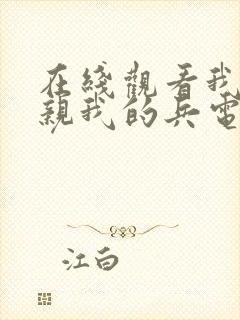 在綫觀看我
親我的兵電
江白